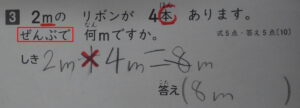 3 2mの リボンが 4本 あります。
ぜんぶで 何mですか。 式5点・答え5点(10)
しき 2m×4m=8m
答え(8m)